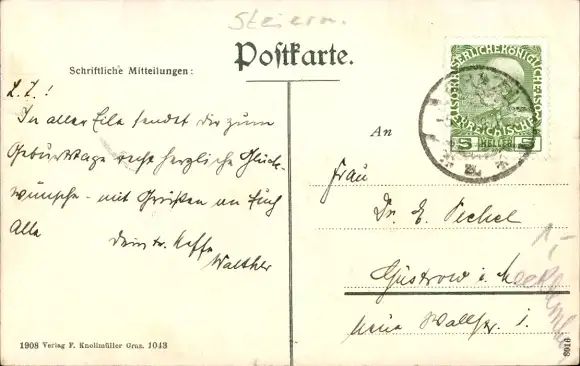 Steierm.
Postkarte.
Schriftliche Mitteilungen:
L. T.!
In aller Eile sendet dir zum
Geburtstage recht herzliche Glück-
wünsche - mit Grüßen an Euch
Alle
Dein tr. Neffe
Walther
KAISERLICHE KÖNIGLICHE
ÖSTERREICHISCHE
5 HELLER 5
An
Frau
Dr. E. Pechel
Güstrow i. M.
neue Wallstr. 1.
1908 Verlag F. Knollmüller Graz. 1043
8016